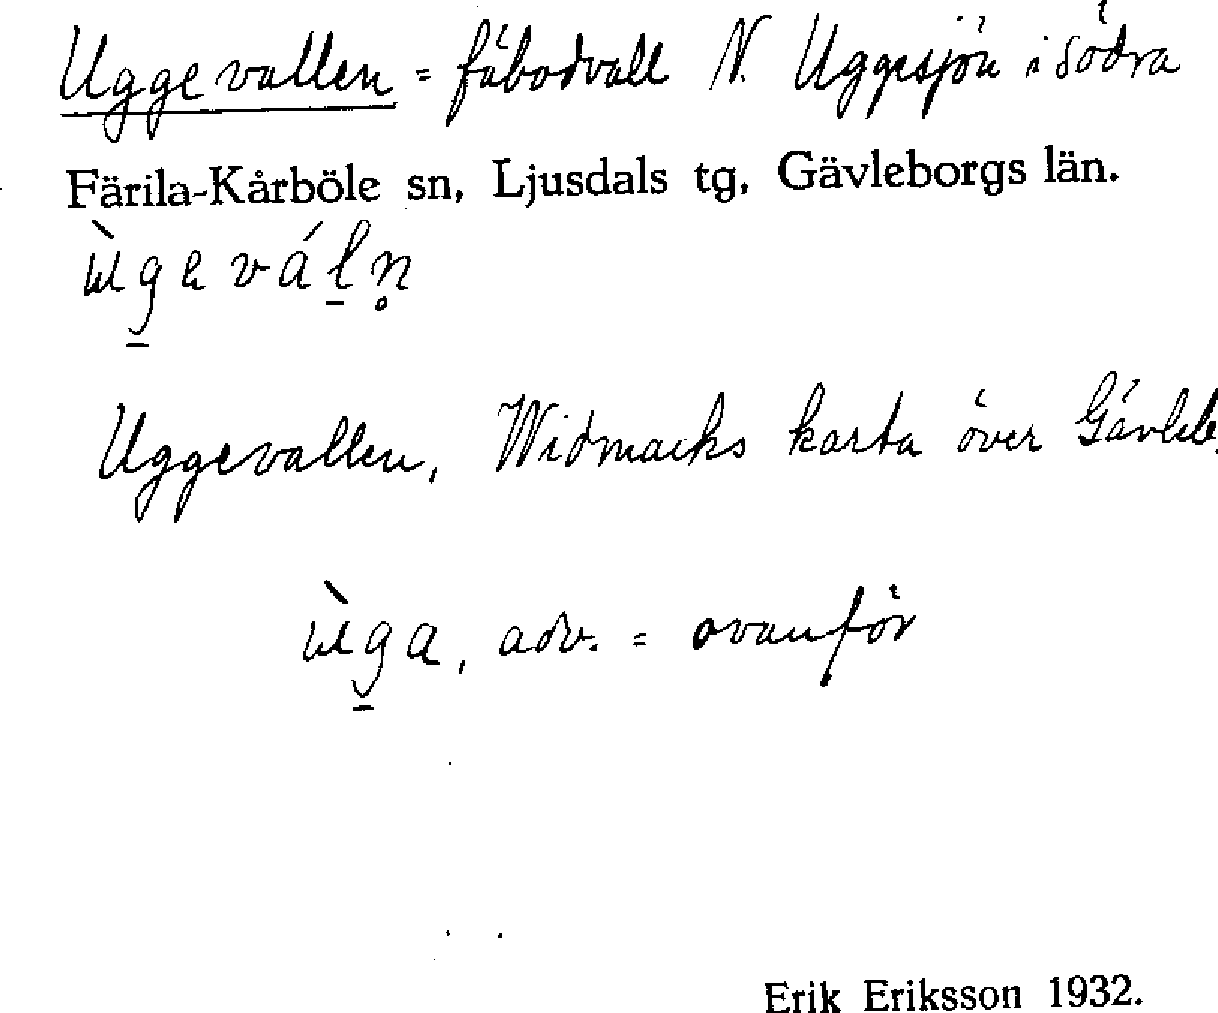 Uggevallen = fäbodvall N. Uggesjön i södra
Färila-Kårböle sn, Ljusdals tg, Gävleborgs län.
ùg̱e váḻn̥
Uggevallen, Widmarks karta över Gävleb.
ùg̱a, adv. = ovanför
Erik Eriksson 1932.